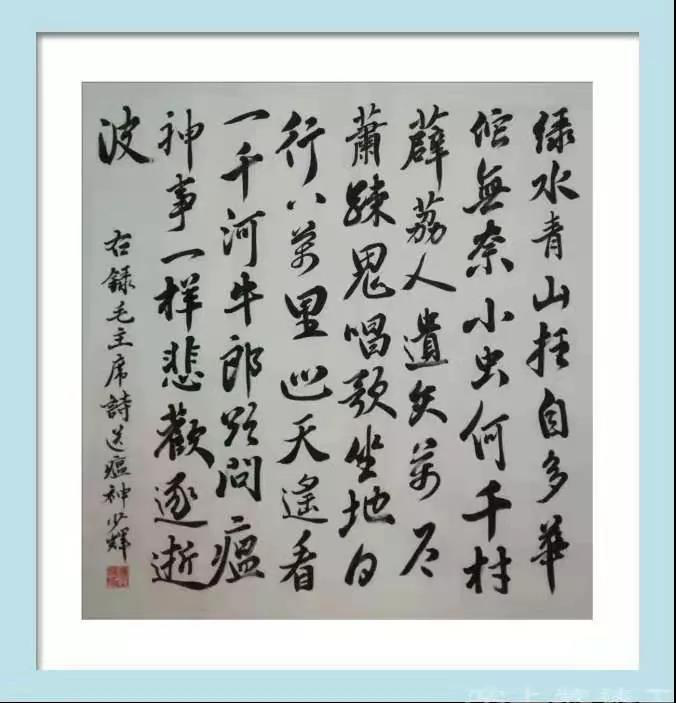 绿水青山枉自多華
佗無奈小虫何千村
薜荔人遺矢萬户
蕭疎鬼唱歌坐地日
行八萬里巡天遙看
一千河牛郎欲問瘟
神事一样悲歡逐逝
波
右録毛主席詩送瘟神少輝